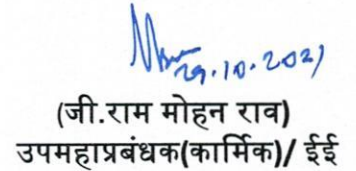 29.10.2021
(जी.राम मोहन राव)
उपमहाप्रबंधक(कार्मिक)/ ईई